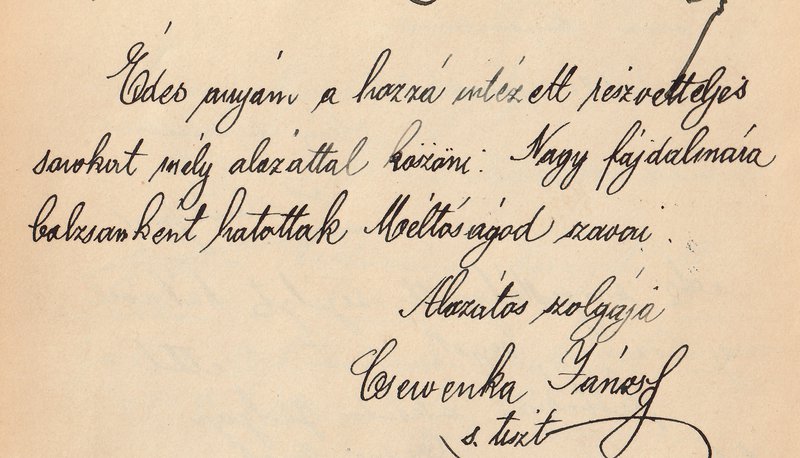 Édes anyám a hozzá intézett részvétteljes
sorokat mély alázattal köszöni. Nagy fájdalmára
balzsamként hatottak Méltóságod szavai.
Alázatos szolgája
Csewenka János
s. tiszt